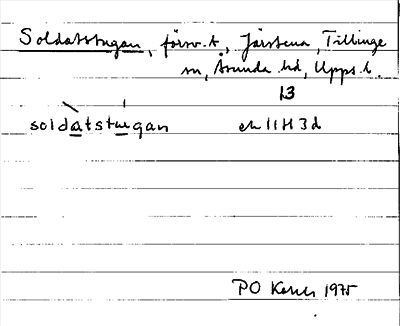 Soldatstugan, försv.t., Järstena, Tillinge
sn, Åsunda hd, Upps. l.
13
soldatstugan ek 11H 3d
PO 1975